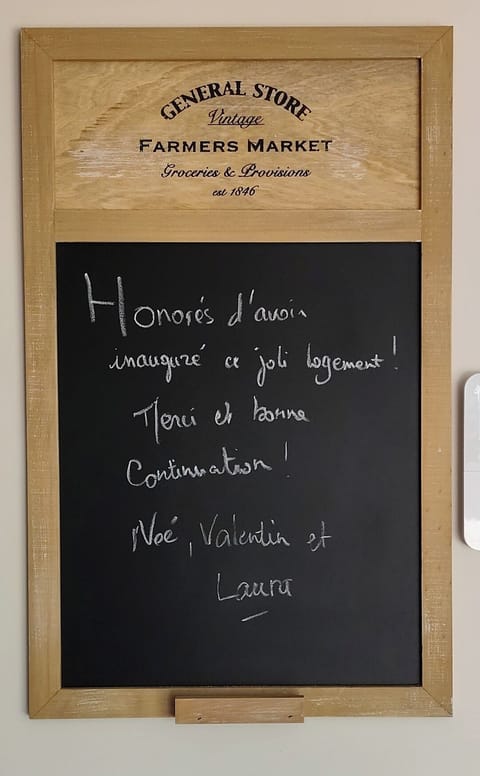 GENERAL STORE
Vintage
FARMERS MARKET
Groceries & Provisions
est 1846
Honorés d'avoir
inauguré ce joli logement !
Merci et bonne
Continuation !
Noé, Valentin et
Laura